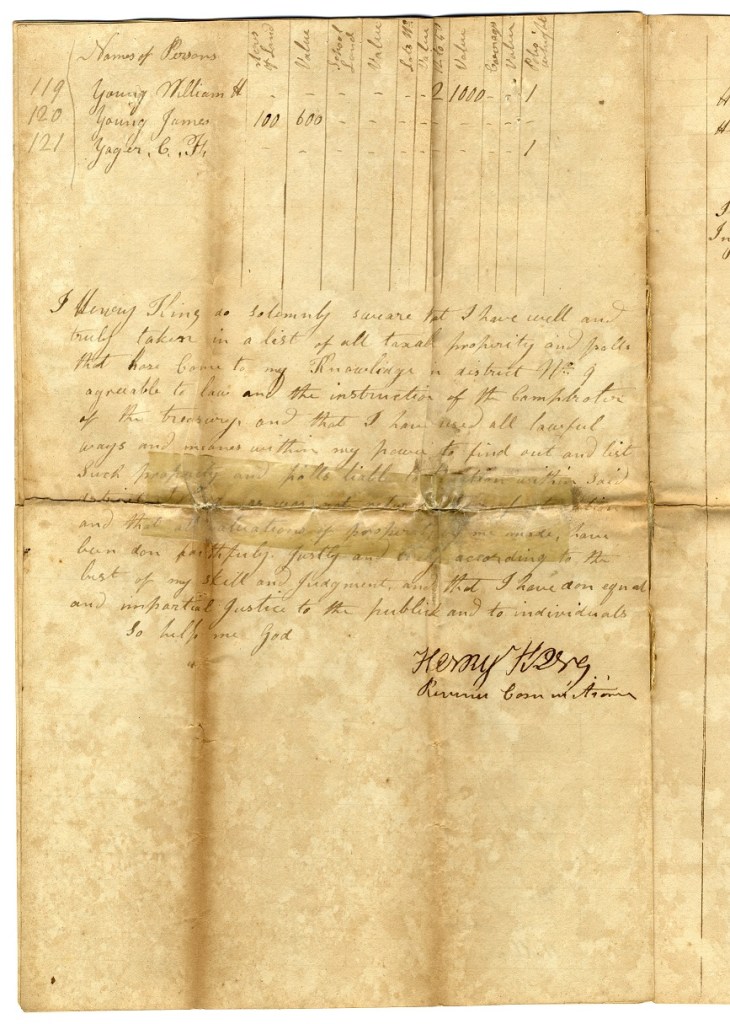 Names of Persons Acres of Land Value School Land Value Value Value Carriage Value
119 Young William H - - - - - - 2 1000 - - 1
120 Young James 100 600 - - - - - - - - -
121 Yager, C. H. - - - - - - - - - - 1
I Henry King do solemnly sweare that I have well and
truly taken in a list of all taxal properity and polls
that have Come to my Knowledge in district No 9
agreeable to law and the instruction of the Comptroler
of the treasury and that I have used all lawful
ways and meanes within my power to find out and list
Such properity and polls liable to taxation within said
and that all valuations of properity by me made, have
been don faithfuly Justly and according to the
best of my skill and Judgment, and that I have don equal
and impartial Justice to the publick and to individuals
So help me God
Henry King
Revenue Commissioner